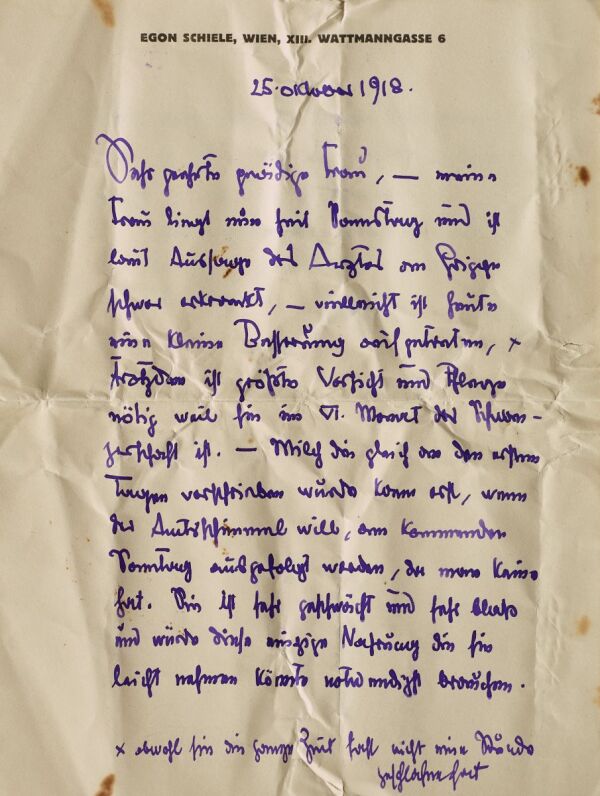 EGON SCHIELE, WIEN, XIII. WATTMANNGASSE 6
25. oktober 1918.
Sehr geehrte gnädige Frau, — meine
Frau liegt nun seit Sonntag und ist
laut Aussage des Arztes an Grippe
schwer erkrankt, — vielleicht ist heute
eine kleine Besserung aufgetreten, x
trotzdem ist größte Vorsicht und Pflege
nötig weil sie im VI. Monat der Schwan-
gerschaft ist. — Milch die gleich an den ersten
Tagen verschrieben wurde kann erst, wenn
der Amtsschimmel will, am kommenden
Sonntag ausgefolgt werden, da man keine
hat. Sie ist sehr geschwächt und sehr blass
und würde diese einzige Nahrung die sie
leicht nehmen könnte notwendigst brauchen.
x obwohl sie die ganze Zeit fast nicht eine Stunde
geschlafen hat